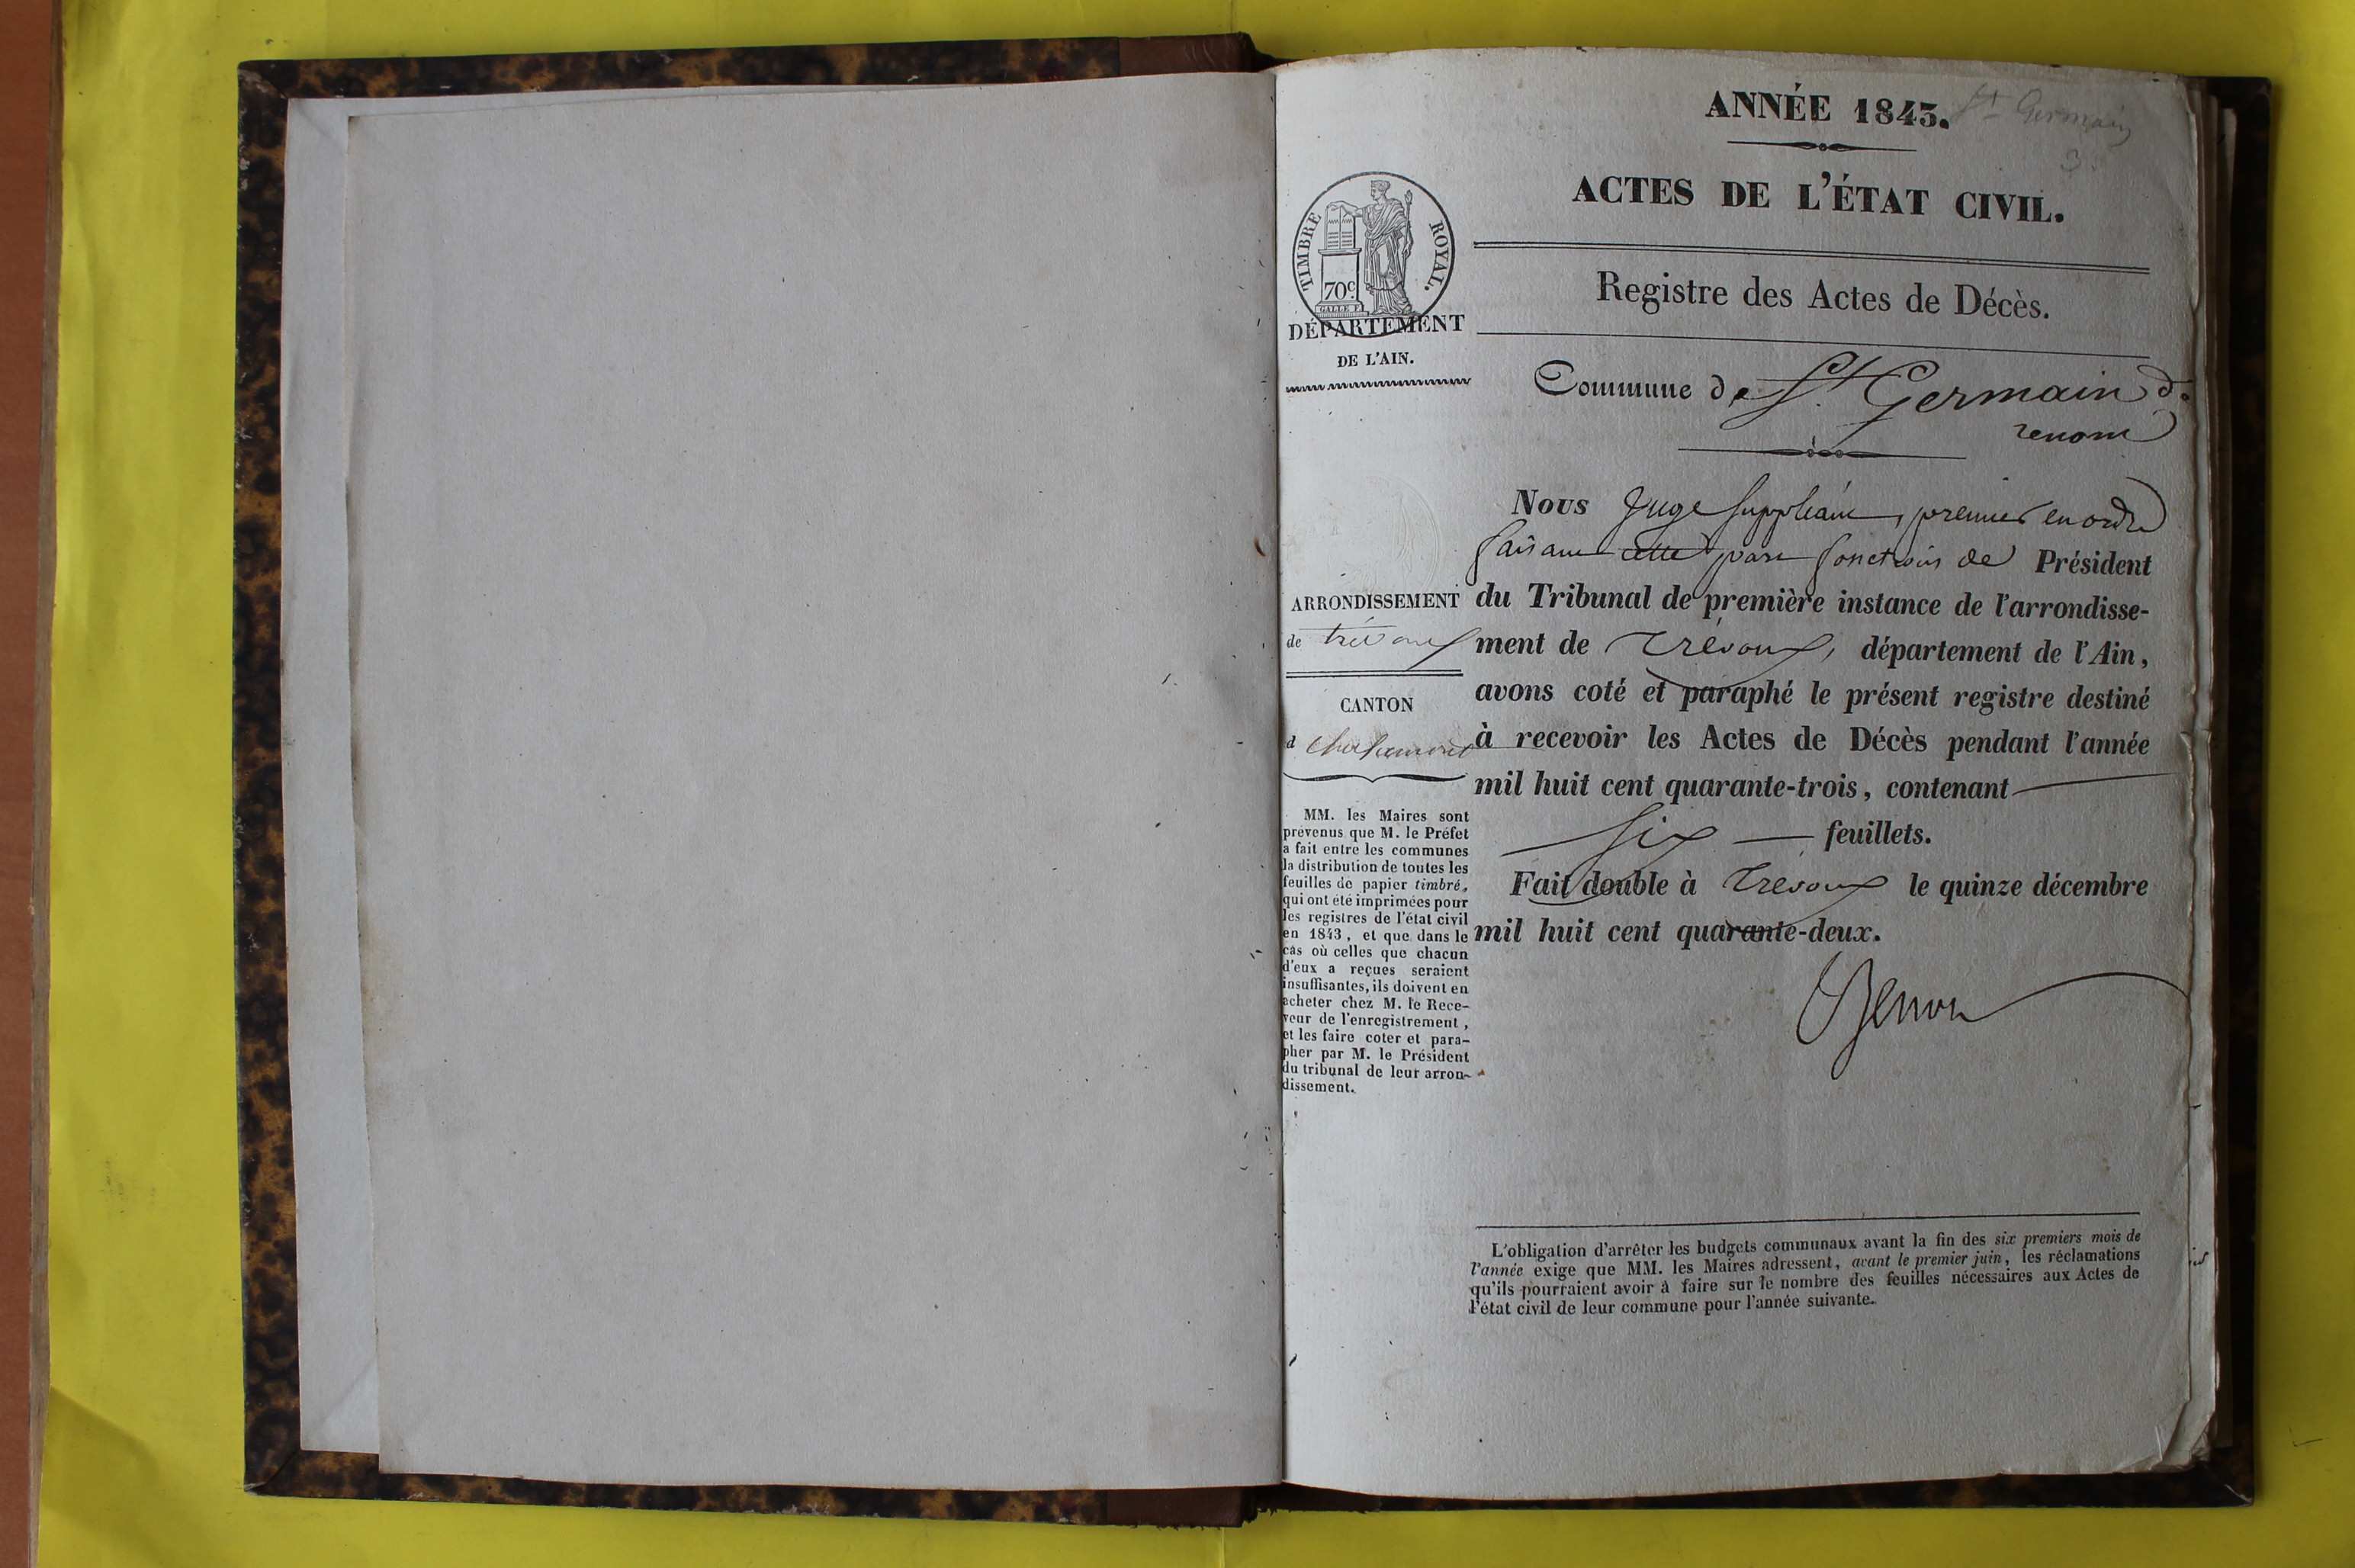 ANNÉE 1843.
St Germain
3
ACTES DE L'ÉTAT CIVIL.
TIMBRE ROYAL.
70c
GALLE F.
DÉPARTEMENT
DE L'AIN.
Registre des Actes de Décès.
Commune de St Germain d.
renom
Nous Juge Suppléant, premier en ordre
faisant cette part fonctions de Président
du Tribunal de première instance de l'arrondisse-
ment de Trévoux, département de l'Ain,
avons coté et paraphé le présent registre destiné
à recevoir les Actes de Décès pendant l'année
mil huit cent quarante-trois, contenant
six feuillets.
Fait double à Trévoux le quinze décembre
mil huit cent quarante-deux.
ARRONDISSEMENT
de trévoux
CANTON
d chalamont
MM. les Maires sont
prévenus que M. le Préfet
a fait entre les communes
la distribution de toutes les
feuilles de papier timbré,
qui ont été imprimées pour
les registres de l'état civil
en 1843, et que dans le
cas où celles que chacun
d'eux a reçues seraient
insuffisantes, ils doivent en
acheter chez M. le Rece-
veur de l'enregistrement,
et les faire coter et para-
pher par M. le Président
du tribunal de leur arron-
dissement.
L'obligation d'arrêter les budgets communaux avant la fin des six premiers mois de
l'année exige que MM. les Maires adressent, avant le premier juin, les réclamations
qu'ils pourraient avoir à faire sur le nombre des feuilles nécessaires aux Actes de
l'état civil de leur commune pour l'année suivante.